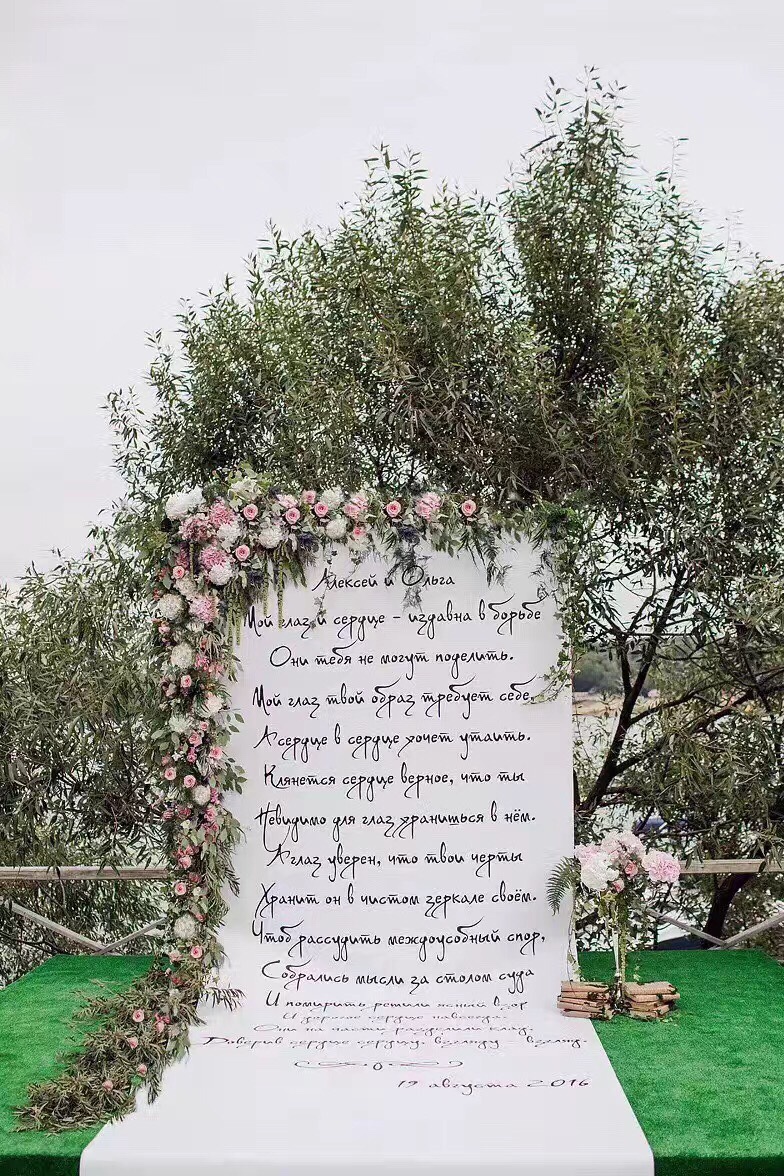 Алексей и Ольга
Мой глаз и сердце – издавна в борьбе
Они тебя не могут поделить.
Мой глаз твой образ требует себе,
А сердце в сердце хочет утаить.
Клянется сердце верное, что ты
Невидимо для глаз хранишься в нём.
А глаз уверен, что твои черты
Хранит он в чистом зеркале своём.
Чтоб рассудить междоусобный спор,
Собрались мысли за столом суда
И помирить решили ясный взор
И дорогое сердце навсегда.
Они на части разделили клад,
Доверив сердце сердцу, взгляду – взгляд.
19 августа 2016